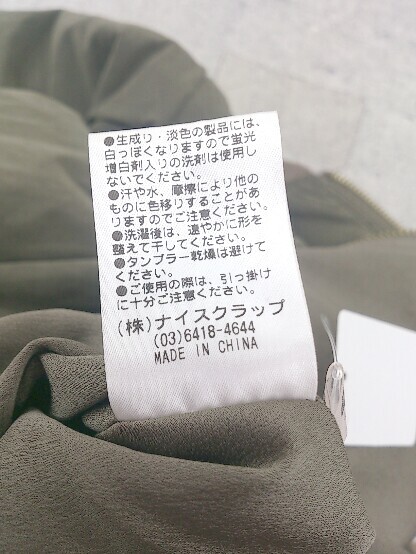 ●生成り・淡色の製品には、
白っぽくなりますので蛍光
増白剤入りの洗剤は使用し
ないでください。
●汗や水、摩擦により他の
ものに色移りすることがあ
りますのでご注意ください。
●洗濯後は、速やかに形を
整えて干してください。
●タンブラー乾燥は避けて
ください。
●ご使用の際は、引っ掛け
に十分ご注意ください。
(株)ナイスクラップ
(03)6418-4644
MADE IN CHINA